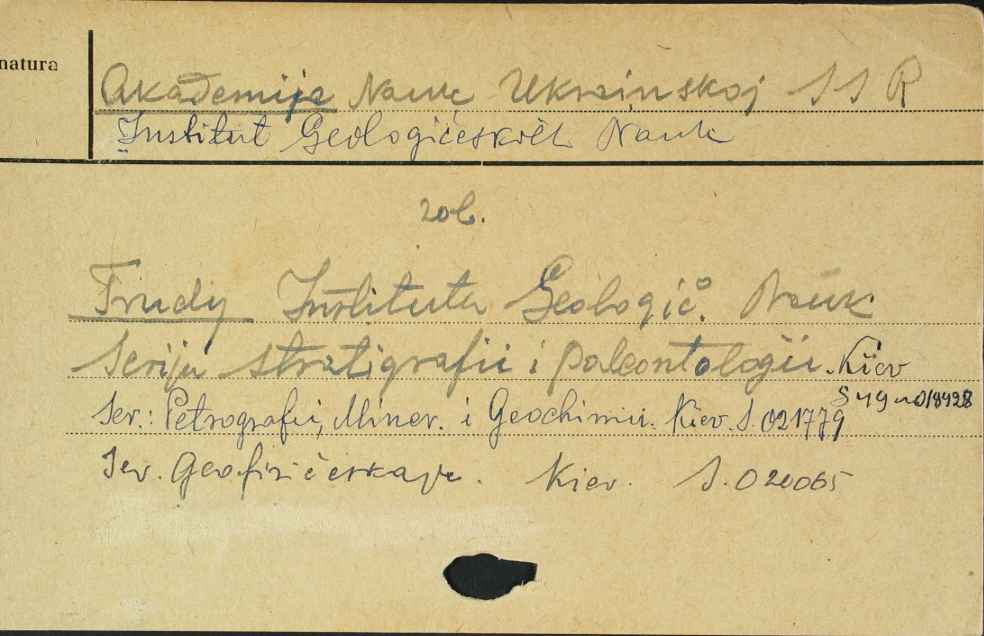 natura
Akademija Nauk Ukrainskoj SSR
Institut Geologičeskich Nauk
20b.
Trudy Instituta Geologič. Nauk
Serija stratigrafii i paleontologii. Kiev
Sygn 018428
Ser.: Petrografii, Miner. i Geochimii. Kiev. S. 021779
Ser. Geofizičeskaja. Kiev. S. 020065